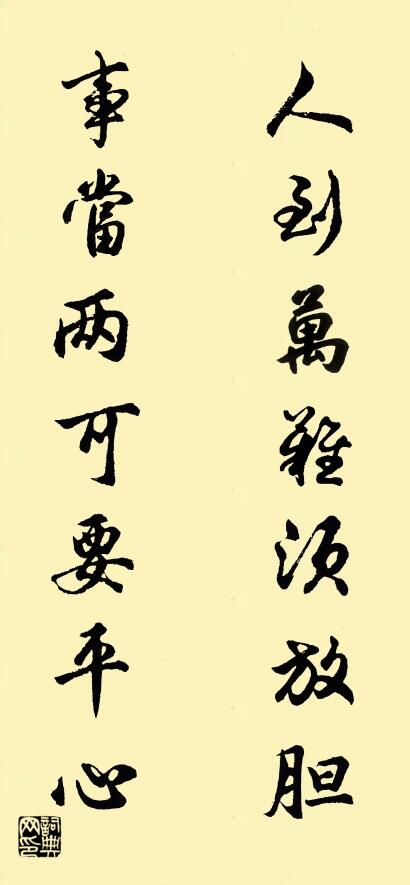 人到萬難須放胆
事當两可要平心
詞典网印